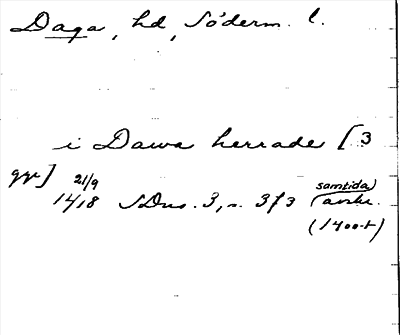 Daga, hd, Söderm. l.
i Dawa herrade [3
ggr] 21/9
1418 SDns. 3, s. 3 samtida
(avskr.
(1400-t)